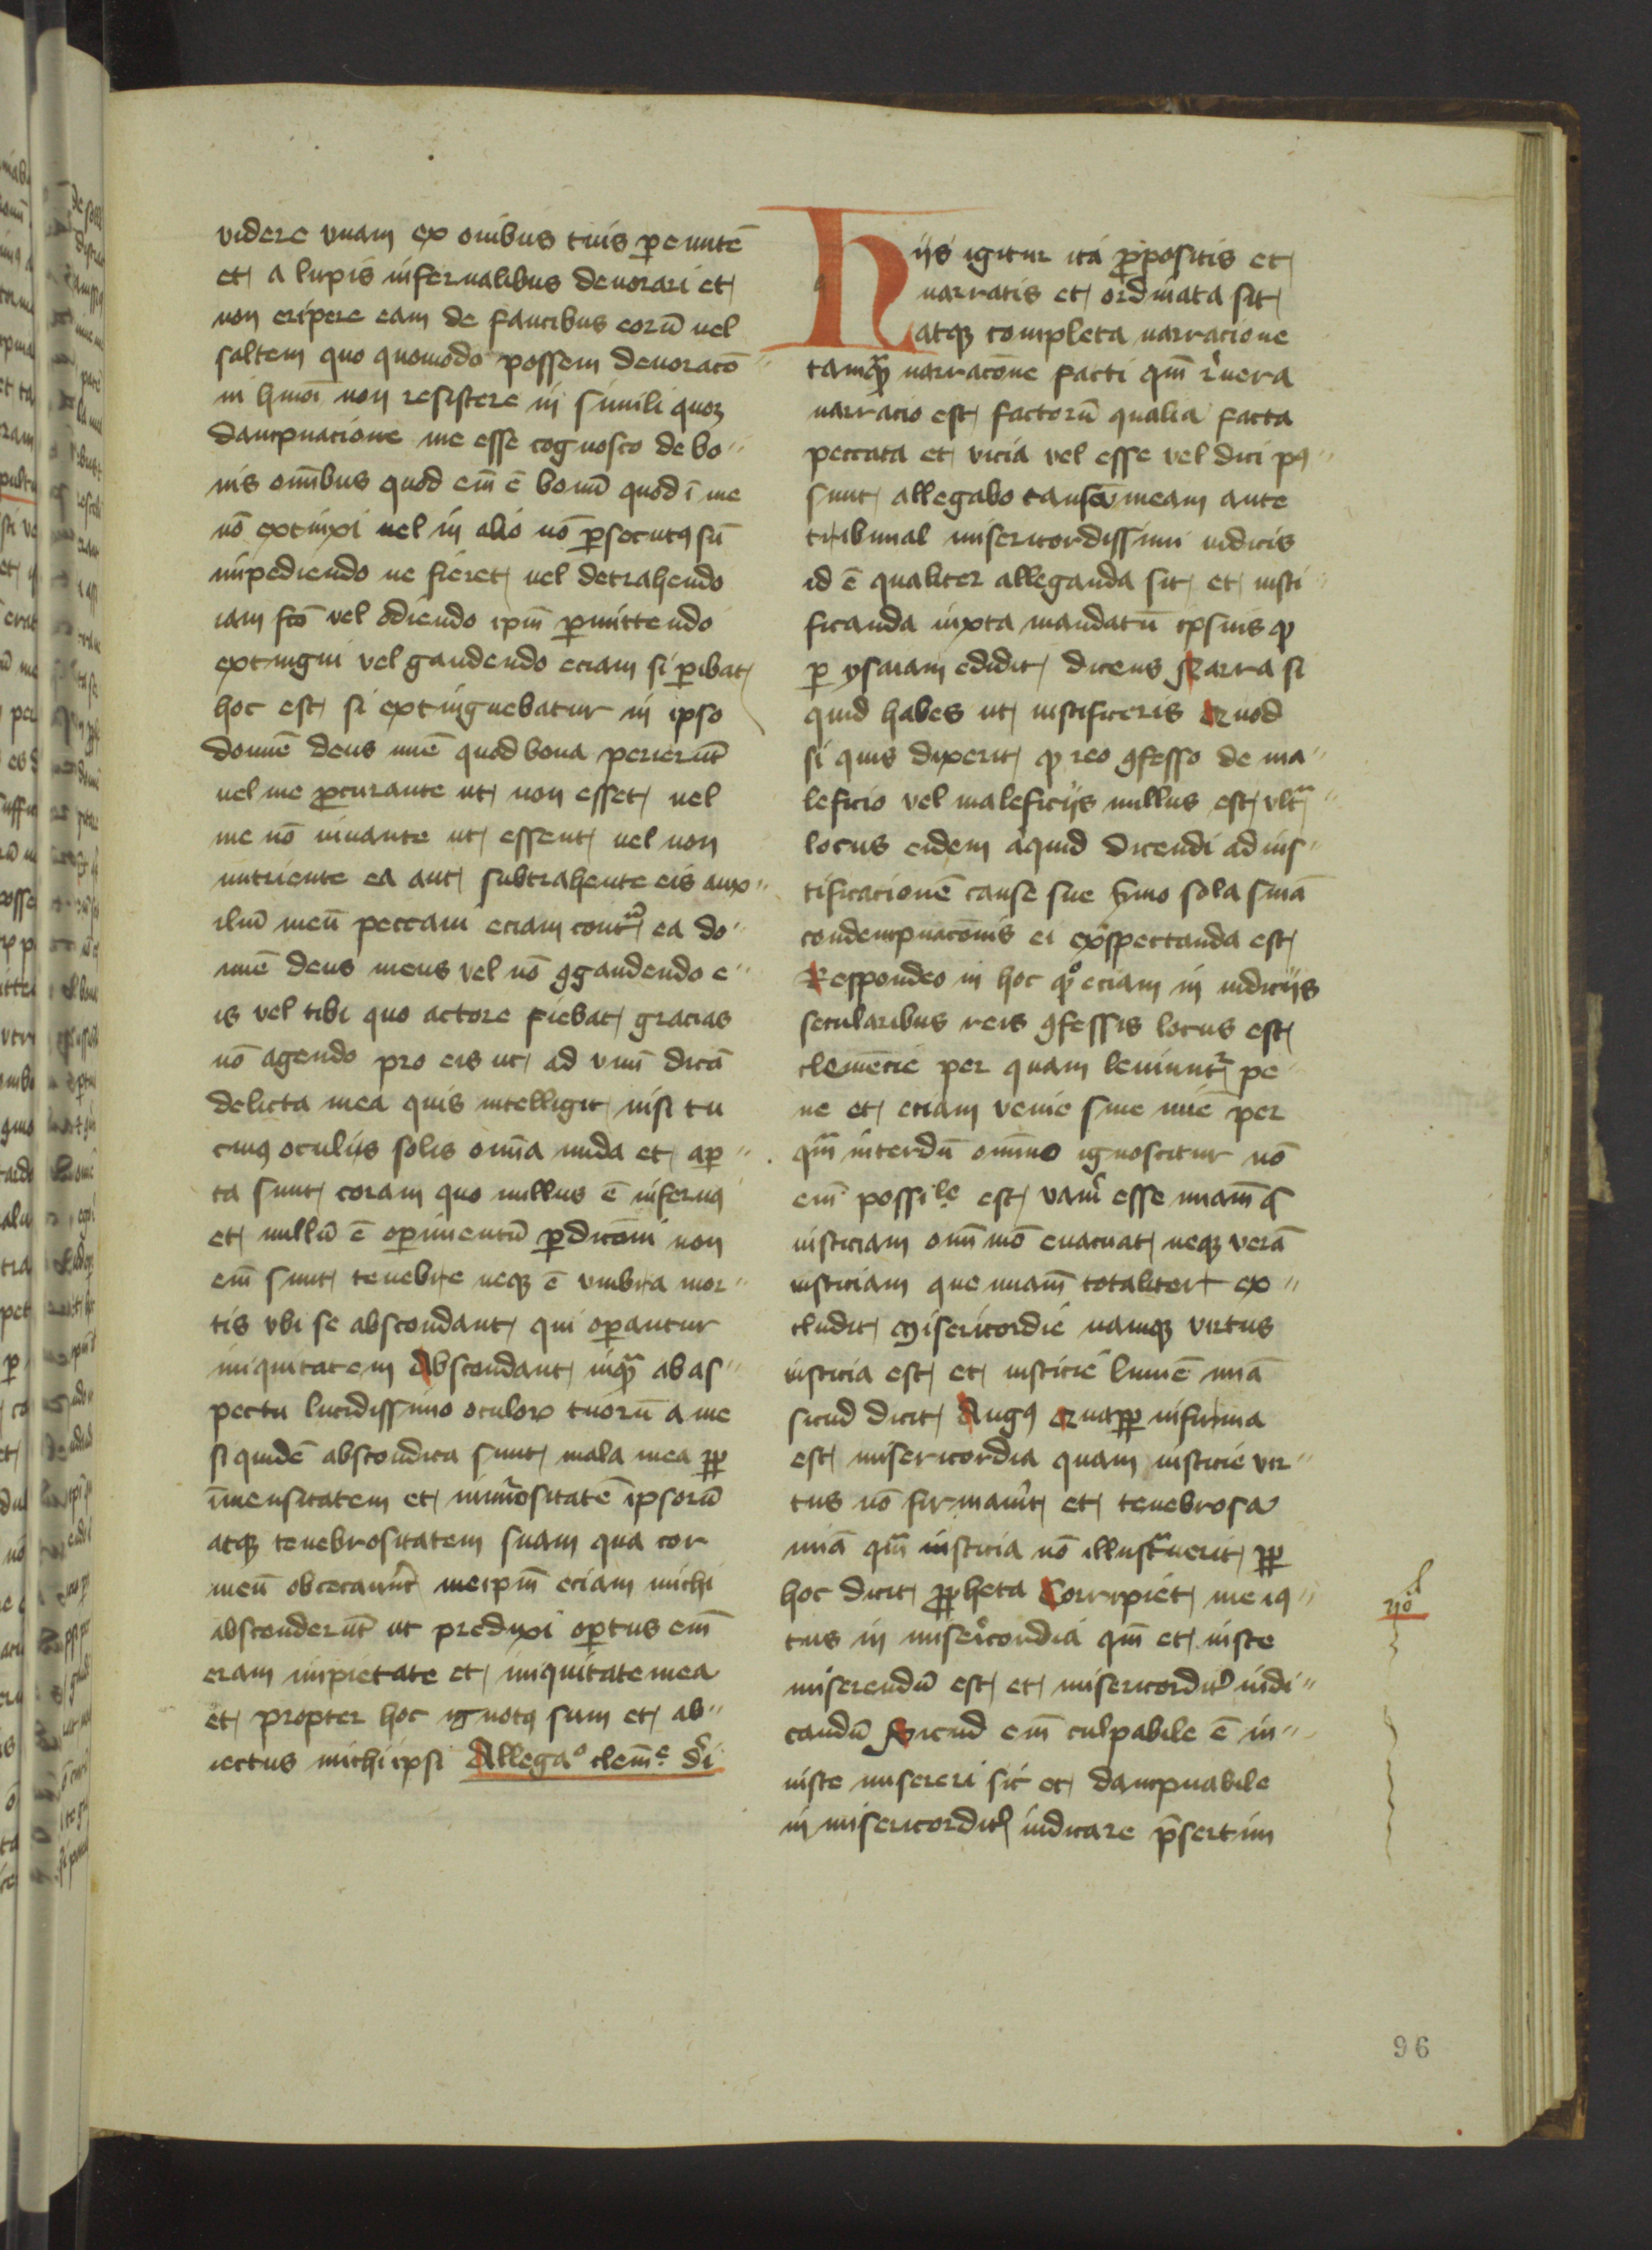 videre vnam ex ouibus tuis peuntē
et a lupis infernalibus deuorari et
non eripere eam de faucibus eorū uel
saltem quo quomodo possem deuoracō
ni hmoī non resistere in simili quoqꝫ
dampnacione me esse cognosco de bo
nis omībus quod em̄ ē bonū quod ī me
nō extinxi uel in alio nō ꝑsecutꝰ sū
impediendo ne fieret uel detrahendo
iam fcō vel odiendo ipm̄ ꝑmittendo
extingui vel gaudendo eciam si ꝑibat
hoc est si extinguebatur in ipso
domīe deus meꝰ quod bona perierūt
uel me ꝓcurante ut non esset uel
me nō iuuante ut essent uel non
nutriente ea aut subtrahente eis aux
iliū meū peccaui eciam contᵃ ea do
mīe deus meus vel nō ꝯgaudendo e
is vel tibi quo actore fiebat gracias
nō agendo pro eis ut ad vnū dicā
delicta mea quis intelligit nisi tu
cuiꝰ oculis solis om̄ia nuda et aꝑ
ta sunt coram quo nullus ē infernꝰ
et nullū ē oꝑimentū ꝑdicōni non
em̄ sunt tenebre neqꝫ ē vmbra mor
tis vbi se abscondant qui oꝑantur
iniquitatem Abscondant inqᵃꝫ ab as
pectu lucidissimo oculoꝝ tuorū a me
si quidē abscondita sunt mala mea ꝓꝑ
īmensitatem et nūmositatē ipsorū
atqꝫ tenebrositatem suam qua cor
meū obcecauerūt meipm̄ eciam michi
absconderūt ut preduxi oꝑtus em̄
eram impietate et iniquitate mea
et propter hoc ignotꝰ sum et ab
iectus michi ipsi Allegaᵒ clemᵉ dei
Hiis igitur ita ꝓpositis et
narratis et ordinata sit
atqꝫ completa narracione
tamqᵃꝫ narracōne facti qm̄ reuera
narracio est factorū qualia facta
peccata et vicia vel esse vel dici pꝰ
sunt allegabo causam meam ante
tribunal misericordissimi iudicis
id ē qualiter alleganda sit et iusti
ficanda iuxta mandatū ipsius qꝫ
ꝑ ysaiam edidit dicens Narra si
quid habes ut iustificeris Quod
si quis dixerit ꝙ reo ꝯfesso de ma
leficio vel maleficiis nullus est vltᵃ
locus eidem aliquid dicendi ad ius
tificacionē cause sue ymo sola sniā
condempnacōnis ei exspectanda est
Respondeo in hoc ꝙ eciam in iudiciis
secularibus reis ꝯfessis locus est
clemēcie per quam leniuntᵘʳ pe
ne et eciam venie siue mīe per
qᵃm interdū omīno ignoscitur nō
em̄ possiˡᵉ est veram esse miam̄ q̄
iusticiam omī mō euacuat neqꝫ verā
iusticiam que miam̄ totaliter ex
cludit Misericordie namqꝫ virtus
iusticia est et iusticie lumē mīa
sicud dicit Augꝰ Quapꝓꝑ infirma
est misericordia quam iusticie vir
tus nō firmauerit et tenebrosa
mīa qᵃm iusticia nō illustᵃuerit ꝓꝑ
hoc dicit ꝓpheta Corripiet me iꝰ
tus in misericordia qm̄ et iuste
miserendū est et misericorditer iudi
candū Sicud em̄ culpabile ē in
iuste misereri sic et dampnabile
in misericorditer iudicare p̄sertim
96